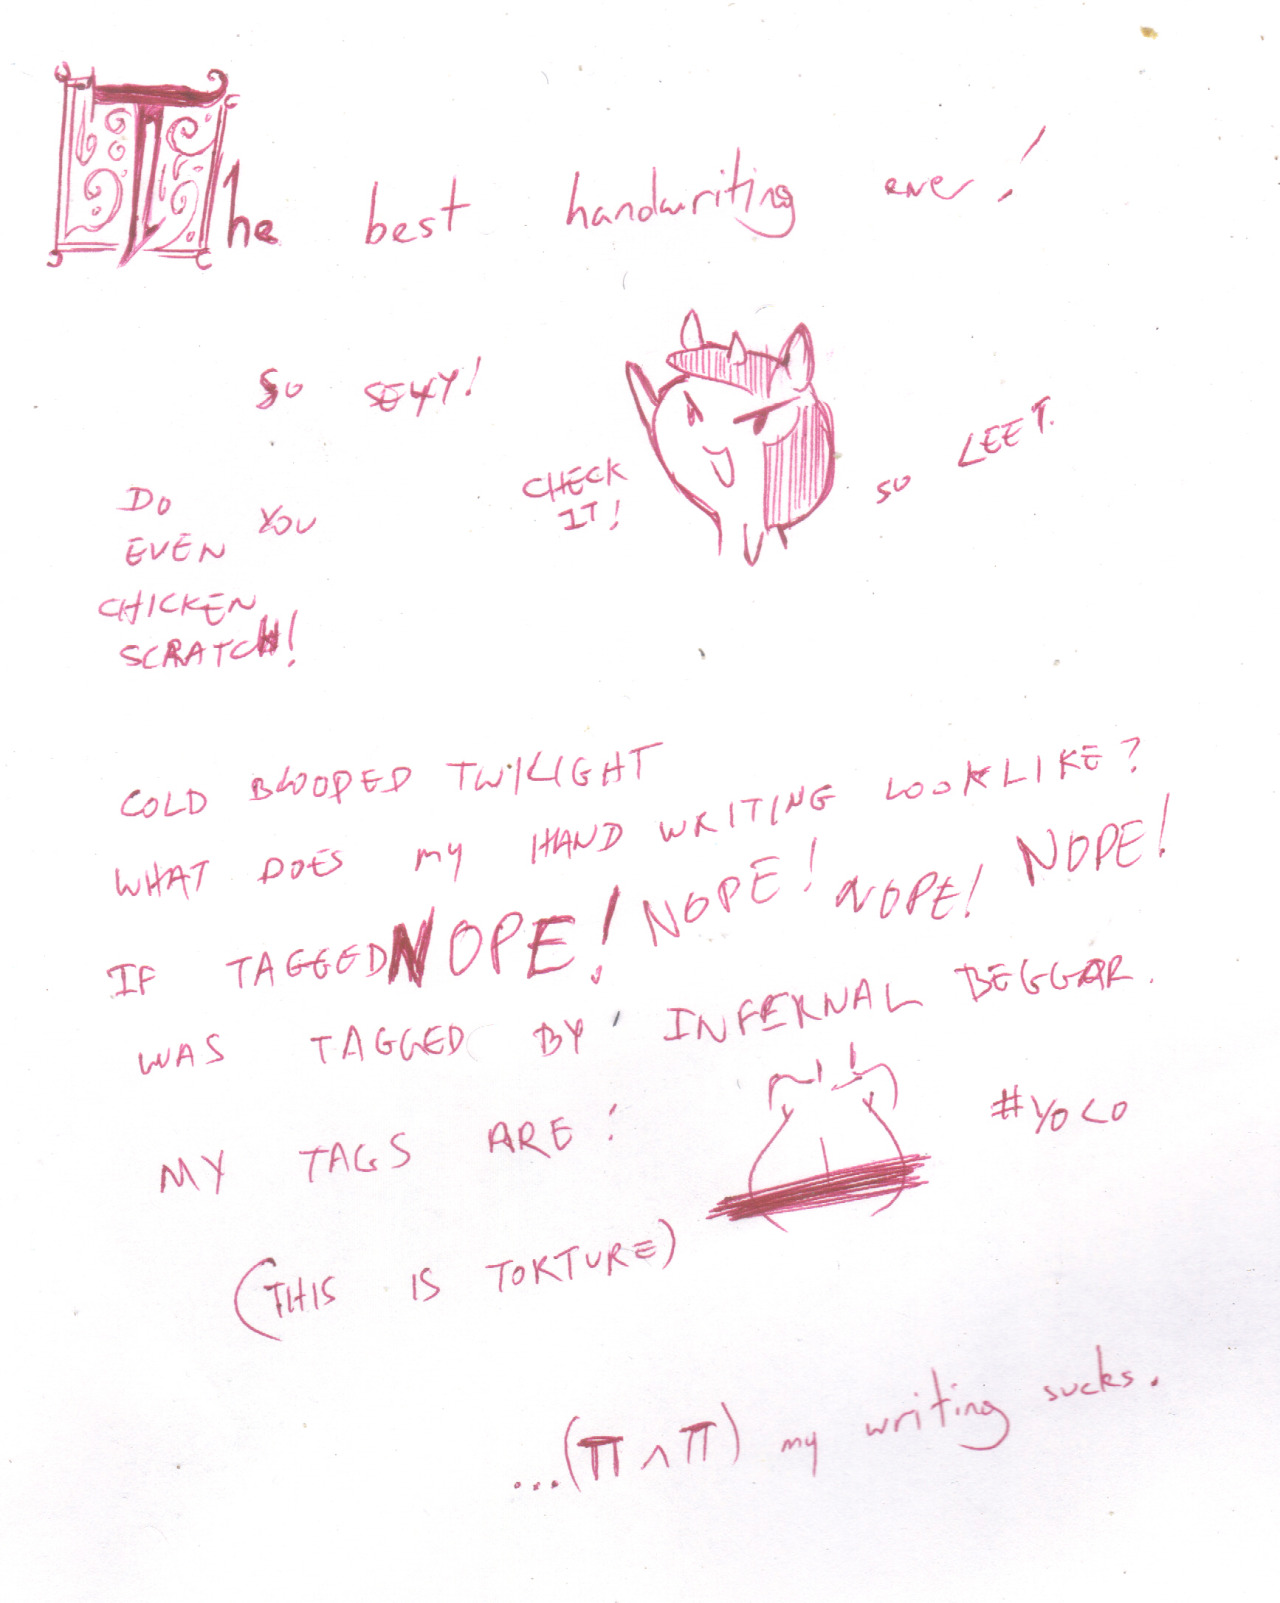 The best handwriting ever!
SO SEXY!
CHECK
IT!
SO LEET.
DO
EVEN YOU
CHICKEN
SCRATCH!
COLD BLOODED TWILIGHT
WHAT DOES my HAND WRITING LOOK LIKE?
IF TAGGED NOPE! NOPE! NOPE! NOPE!
WAS TAGGED BY INFERNAL BEGGAR.
MY TAGS ARE:
#YOLO
(THIS IS TORTURE)
...(π^π) my writing sucks.